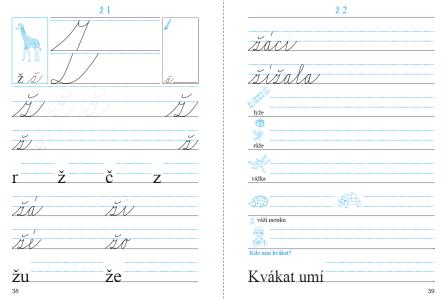 ž 1
ž ž
ž
ž ž
ž ž
r ž č z
žá ži
žé žo
žu že
38
ž 2
žáci
žížala
lyže
růže
vážka
váží mouku.
Kdo umí kvákat?
Kvákat umí
39